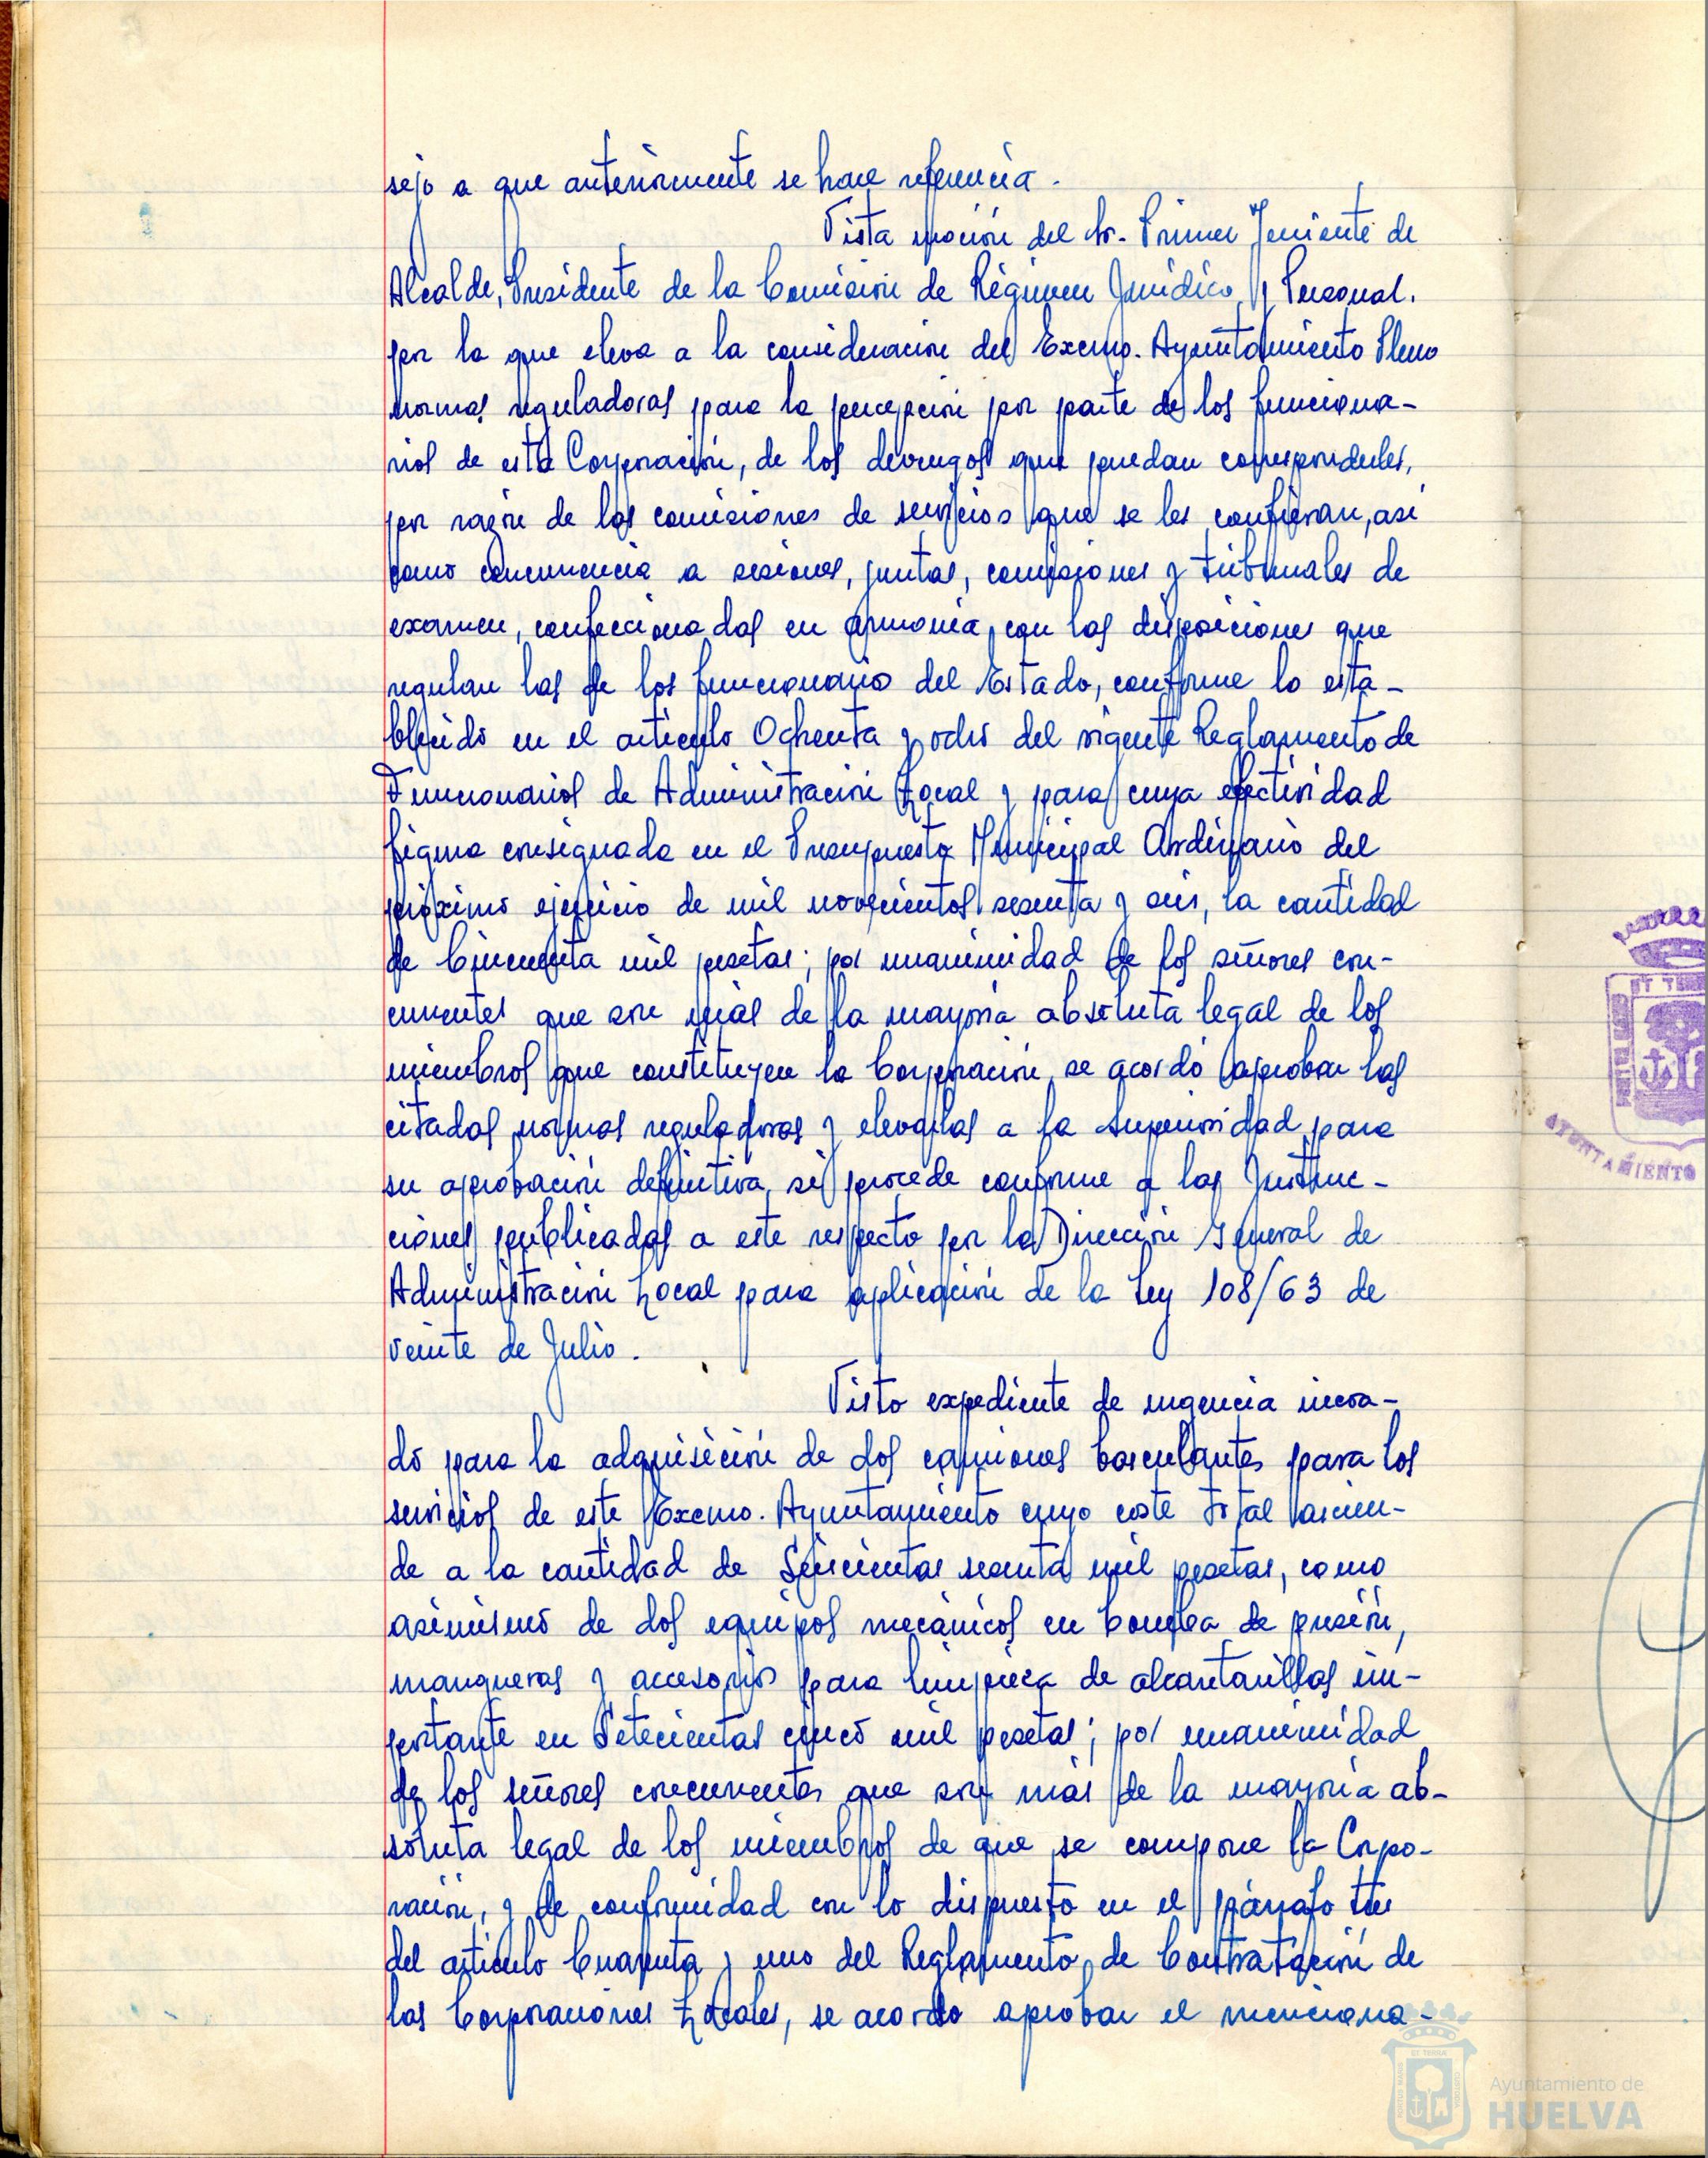 sejo a que anteriormente se hace referencia.
Vista moción del Sr. Primer Teniente de
Alcalde, Presidente de la Comisión de Régimen Jurídico y Personal,
por la que eleva a la consideración del Excmo. Ayuntamiento Pleno
normas reguladoras para la percepción por parte de los funciona-
rios de esta Corporación, de los devengos que puedan corresponderles,
por razón de las comisiones de servicios que se les confieran, asi
como concurrencia a sesiones, juntas, comisiones y tribunales de
examen, confeccionadas en armonía con las disposiciones que
regulan las de los funcionarios del Estado, conforme lo esta-
blecido en el artículo Ochenta y ocho del vigente Reglamento de
Funcionarios de Administración Local y para cuya efectividad
figura consignada en el Presupuesto Municipal Ordinario del
próximo ejercicio de mil novecientos sesenta y seis, la cantidad
de Cincuenta mil pesetas; por unanimidad de los señores con-
currentes que son más de la mayoría absoluta legal de los
miembros que constituyen la Corporación, se acordó aprobar las
citadas normas reguladoras y elevarlas a la Superioridad para
su aprobación definitiva, si procede conforme a las Instruc-
ciones publicadas a este respecto por la Dirección General de
Administración Local para aplicación de la Ley 108/63 de
veinte de Julio.
Visto expediente de urgencia incoa-
do para la adquisición de dos camiones basculantes para los
servicios de este Excmo. Ayuntamiento cuyo coste total ascien-
de a la cantidad de Seiscientas sesenta mil pesetas, como
asimismo de dos equipos mecánicos en bomba de presión,
mangueras y accesorios para limpieza de alcantarillas im-
portante en Setecientas cinco mil pesetas; por unanimidad
de los señores concurrentes que son más de la mayoría ab-
soluta legal de los miembros de que se compone la Corpo-
ración, y de conformidad con lo dispuesto en el párrafo tres
del artículo Cuarenta y uno del Reglamento de Contratación de
las Corporaciones Locales, se acordó aprobar el menciona-
ET TERR
AYUNTAMIENTO
Ayuntamiento de
HUELVA